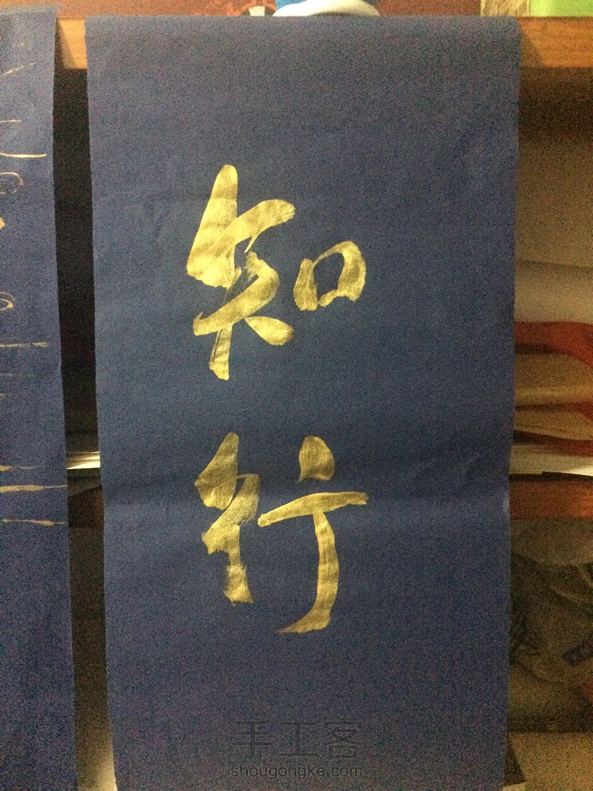 知
行
手工客
shougongke.com